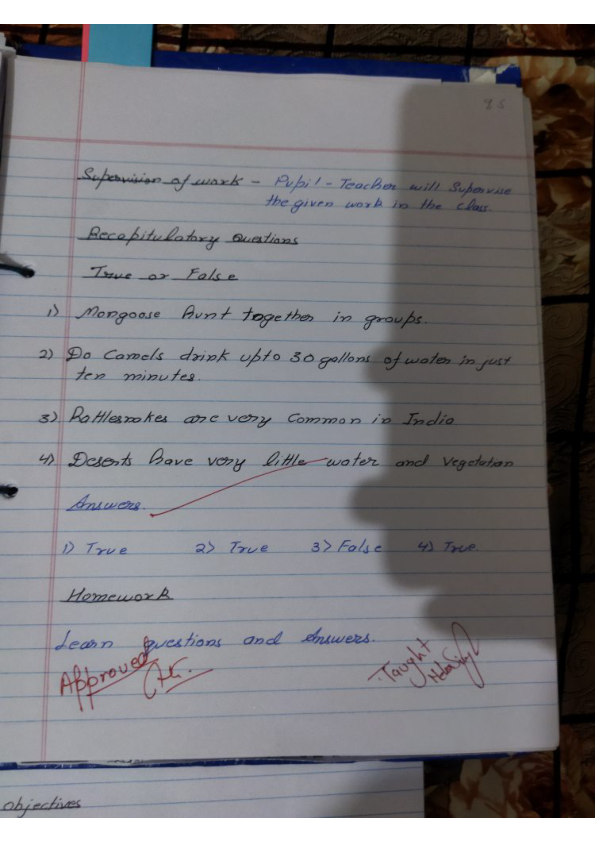 86
Supervision of work - Pupil-Teacher will Supervise
the given work in the class.
Recapitulatory Questions
True or False
1) Mongoose hunt together in groups.
2) Do Camels drink upto 30 gallons of water in just
ten minutes.
3) Rattlesnakes are very common in India
4) Deserts have very little water and vegetation
Answers.
1) True 2) True 3) False 4) True.
Homework
Learn questions and Answers.
Approved
Taught
objectives